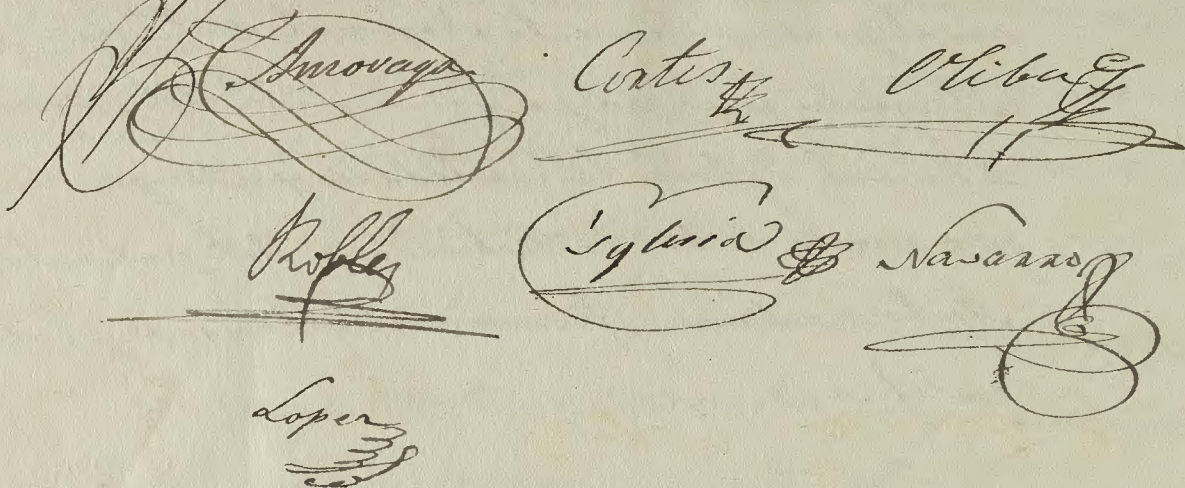 Amovaga Cortes Oliba
Robles Yglesia Navarro
Lopez